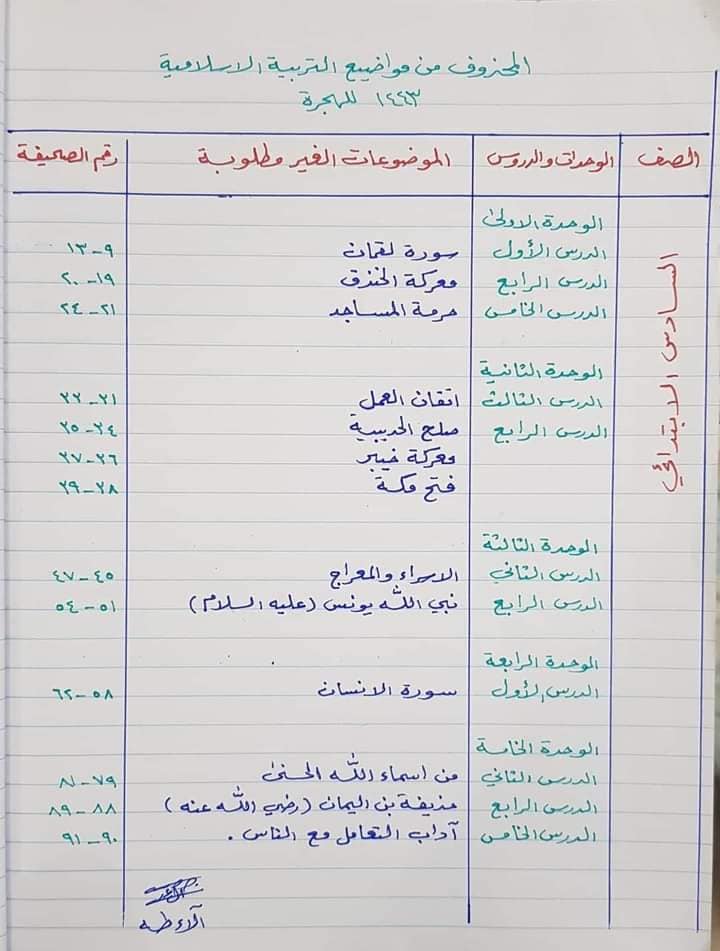 المحذوف من مواضيع التربية الاسلامية
١٤٤٣ للهجرة
الصف الوحدات والدروس الموضوعات الغير مطلوبة رقم الصحيفة
السادس الابتدائي
الوحدة الاولى
الدرس الأول سورة لقمان ٩-١٣
الدرس الرابع معركة الخندق ١٩-٢٠
الدرس الخامس حرمة المساجد ٢١-٢٤
الوحدة الثانية
الدرس الثالث اتقان العمل ٢١-٢٢
الدرس الرابع صلح الحديبية ٢٤-٢٥
معركة خيبر ٢٦-٢٧
فتح مكة ٢٨-٢٩
الوحدة الثالثة
الدرس الثاني الاسراء والمعراج ٤٥-٤٧
الدرس الرابع نبي الله يونس (عليه السلام) ٥١-٥٤
الوحدة الرابعة
الدرس الأول سورة الانسان ٥٨-٦٢
الوحدة الخامسة
الدرس الثاني من اسماء الله الحسنى ٧٩-٨١
الدرس الرابع حذيفة بن اليمان (رضي الله عنه) ٨٨-٨٩
الدرس الخامس آداب التعامل مع الناس . ٩٠-٩١
آلاء طه